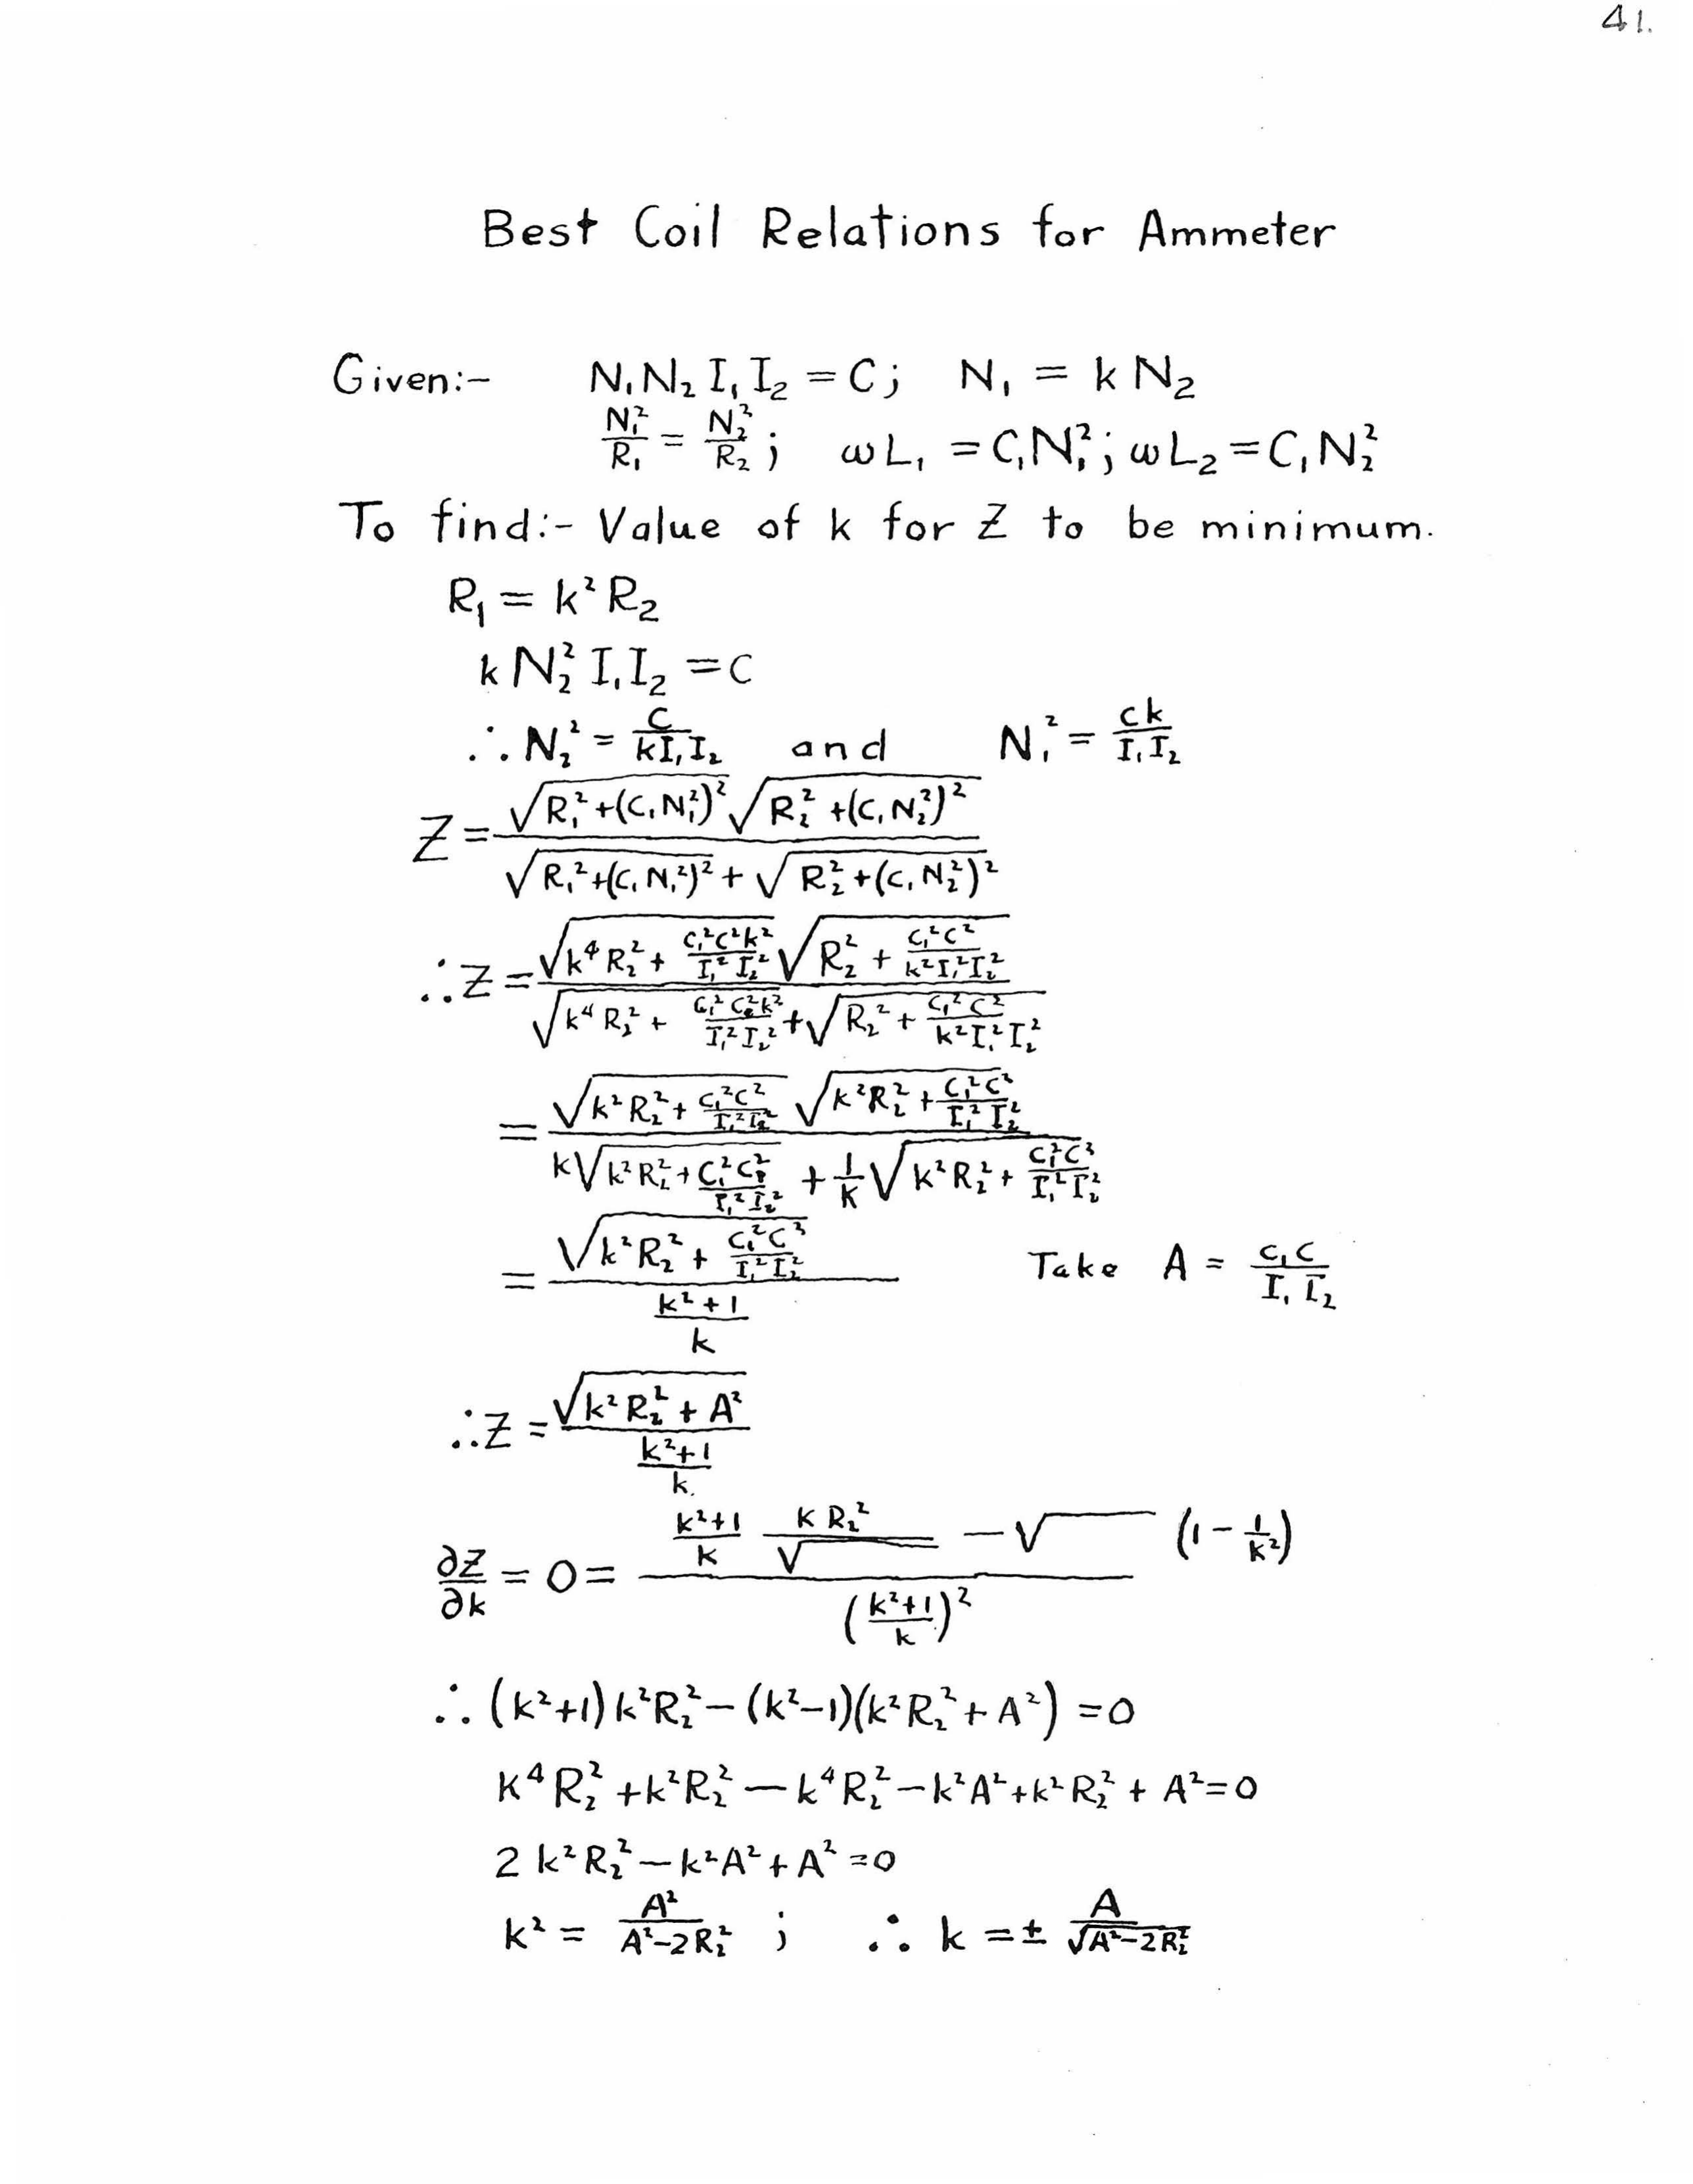 41.
Best Coil Relations for Ammeter
Given:- N₁N₂ I₁ I₂ = C; N₁ = k N₂
N₁²/R₁ = N₂²/R₂; ωL₁ = C₁N₁²; ωL₂ = C₁N₂²
To find:- Value of k for Z to be minimum.
R₁ = k² R₂
k N₂² I₁I₂ = C
∴ N₂² = C/(kI₁I₂) and N₁² = Ck/(I₁I₂)
Z = (√(R₁² + (C₁N₁²)²) √(R₂² + (C₁N₂²)²)) / (√(R₁² + (C₁N₁²)²) + √(R₂² + (C₁N₂²)²))
∴ Z = (√(k⁴R₂² + C₁²C²k²/(I₁²I₂²)) √(R₂² + C₁²C²/(k²I₁²I₂²))) / (√(k⁴R₂² + C₁²C²k²/(I₁²I₂²)) + √(R₂² + C₁²C²/(k²I₁²I₂²)))
= (√(k²R₂² + C₁²C²/(I₁²I₂²)) √(k²R₂² + C₁²C²/(I₁²I₂²))) / (k√(k²R₂² + C₁²C²/(I₁²I₂²)) + 1/k √(k²R₂² + C₁²C²/(I₁²I₂²)))
= √(k²R₂² + C₁²C²/(I₁²I₂²)) / ((k²+1)/k) Take A = C₁C/(I₁I₂)
∴ Z = √(k²R₂² + A²) / ((k²+1)/k)
∂Z/∂k = 0 = ((k²+1)/k · kR₂²/√ − √ (1 − 1/k²)) / ((k²+1)/k)²
∴ (k²+1)k²R₂² − (k²−1)(k²R₂² + A²) = 0
k⁴R₂² + k²R₂² − k⁴R₂² − k²A² + k²R₂² + A² = 0
2k²R₂² − k²A² + A² = 0
k² = A²/(A²−2R₂²) ; ∴ k = ± A/√(A²−2R₂²)